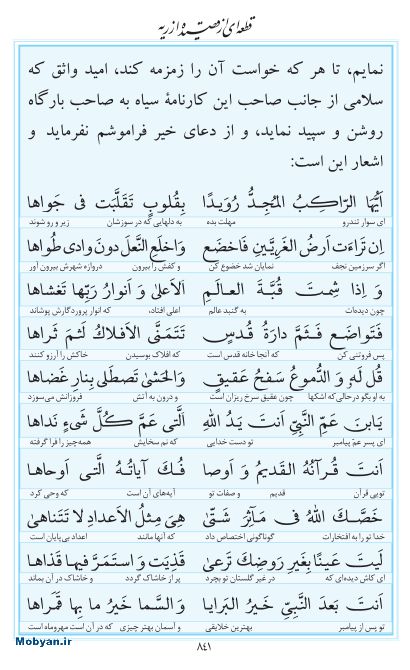 قطعه‌ای از قصیدهٔ ازریه
نمایم، تا هر که خواست آن را زمزمه کند، امید واثق که
سلامی از جانب صاحب این کارنامهٔ سیاه به صاحب بارگاه
روشن و سپید نماید، و از دعای خیر فراموشم نفرماید و
اشعار این است:
اَیُّهَا الرّاکِبُ المُجِدُّ رُوَیدًا بِقُلوبٍ تَقَلَّبَت فی جَواها
ای سوار تندرو مهلت بده به دلهایی که در سوزشان زیر و رو شوند
اِن تَراءَت اَرضُ الغَرِیَّینِ فَاخضَع وَاخلَعِ النَّعلَ دونَ وادی طُواها
اگر سرزمین نجف نمایان شد خضوع کن و کفش را بیرون دروازه شهرش بیرون آور
وَ اِذا شِمتَ قُبَّةَ العالَمِ الاَعلیٰ وَ اَنوارُ رَبِّها تَغشاها
چون دیده‌ات به گنبد عالم اعلی افتاد، که انوار پروردگارش پوشاند
فَتَواضَع فَثَمَّ دارَةُ قُدسٍ تَتَمَنَّی الاَفلاكُ لَثمَ ثَراها
پس فروتنی کن که آنجا خانه قدس است که افلاک بوسیدن خاکش را آرزو کنند
قُل لَهُ وَ الدُّموعُ سَفحُ عَقیقٍ وَالحَشیٰ تَصطَلی بِنارِ غَضاها
به او بگو درحالی‌که اشکها چون عقیق سرخ ریزان است و درون به آتش فروزانش می‌سوزد
یَابنَ عَمِّ النَّبِیِّ اَنتَ یَدُ اللهِ الَّتی عَمَّ کُلَّ شَیءٍ نَداها
ای پسر عمّ پیامبر تو دست خدایی که نم سخایش همه‌چیز را فرا گرفته
اَنتَ قُرآنُهُ القَدیمُ وَ اَوصا فُكَ آیاتُهُ الَّتی اَوحاها
تویی قرآن قدیم و صفات تو آیه‌های آن است که وحی کرد
خَصَّكَ اللهُ فی مَآثِرَ شَتّیٰ هِیَ مِثلُ الاَعدادِ لا تَتَناهیٰ
خدا تو را به افتخارات گوناگونی اختصاص داد که آنها مانند اعداد بی‌پایان است
لَیتَ عَینًا بِغَیرِ رَوضِكَ تَرعیٰ قَذِیَت وَ استَمَرَّ فیها قَذاها
ای کاش دیده‌ای که در غیر گلستان تو بچرد پر از خاشاک گردد و خاشاک در آن بماند
اَنتَ بَعدَ النَّبِیِّ خَیرُ البَرایا وَ السَّما خَیرُ ما بِها قَمَراها
تو پس از پیامبر بهترین خلایقی و آسمان بهتر چیزی که در آن است مهروماه است
Mobyan.ir
۸۴۱